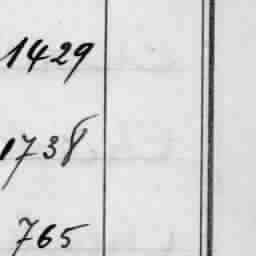 1429
1738
765